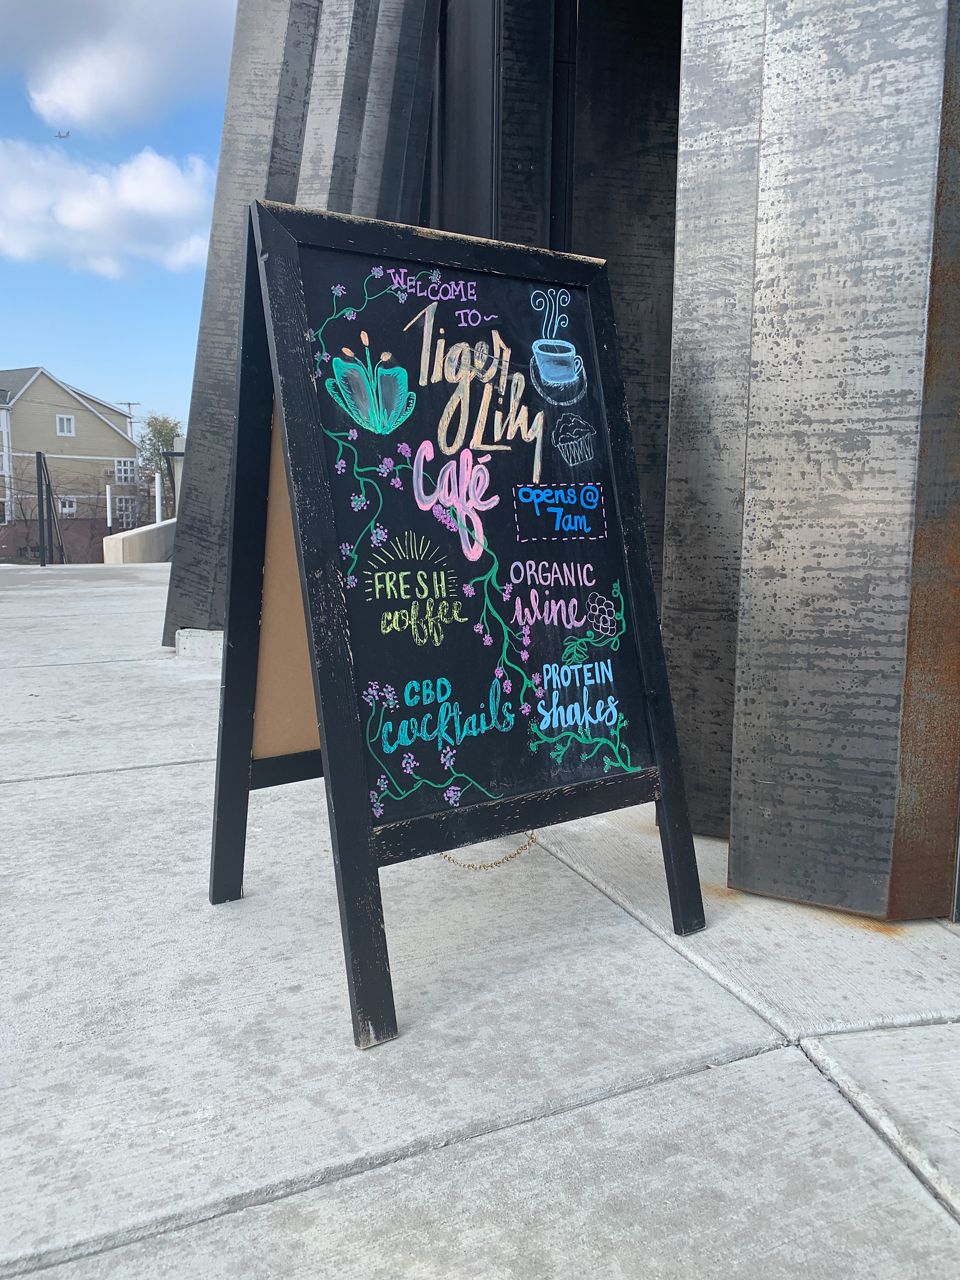 WELCOME
TO~
Tiger
Lily
Café
opens @
7am
FRESH
coffee
ORGANIC
wine
CBD
cocktails
PROTEIN
shakes